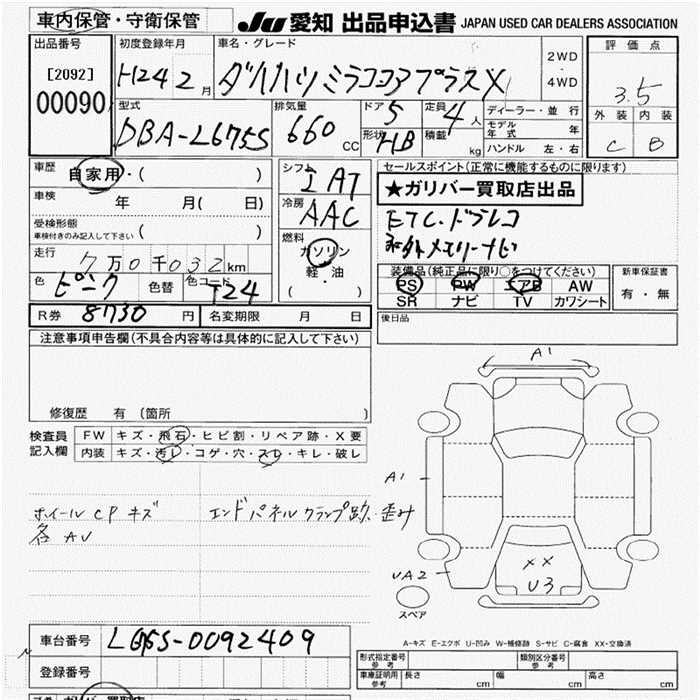 車内保管・守衛保管
JU 愛知 出品申込書 JAPAN USED CAR DEALERS ASSOCIATION
出品番号
[2092]
00090
初度登録年月
H24 2 月
車名・グレード
ダイハツ ミラココア プラスX
2WD
・
4WD
評価点
3.5
外装 内装
C B
型式
DBA-L675S
排気量
660 CC
ドア
5
定員
4 人
形状
HB
積載
kg
ディーラー・並行
モデル年式 年
ハンドル 左・右
車歴
自家用・( )
車検
年 月( 日)
受検形態
車検付きのみ記入して下さい ( )
走行
7万0千032km
色
ピンク
色替
色コード
T24
シフト
I AT
冷房
AAC
燃料
ガソリン
軽・油
( ・ )
セールスポイント(正常に機能するものに限ります)
★ガリバー買取店出品
ETC.ドラレコ
社外メモリーナビ
装備品(純正品に限り○をつけてください)
PS PW エアB AW
SR ナビ TV カワシート
新車保証書
有・無
R券 8730 円
名変期限 月 日
後日品
注意事項申告欄(不具合内容等は具体的に記入して下さい)
修復歴 有 (箇所 )
検査員記入欄
FW キズ・飛石・ヒビ割・リペア跡・X要
内装 キズ・汚レ・コゲ・穴・スレ・キレ・破レ
ホイールCPキズ
各AU
エンドパネルクランプ跡.歪み
A1
A1
UA2
XX
U3
スペア
A-キズ E-エクボ U-凹み W-補修跡 S-サビ C-腐食 XX-交換済
車台番号 L675S-0092409
登録番号
形式指定番号
参考
類別区分番号
参考
車庫証明用
参考
長さ cm
幅 cm
高さ cm